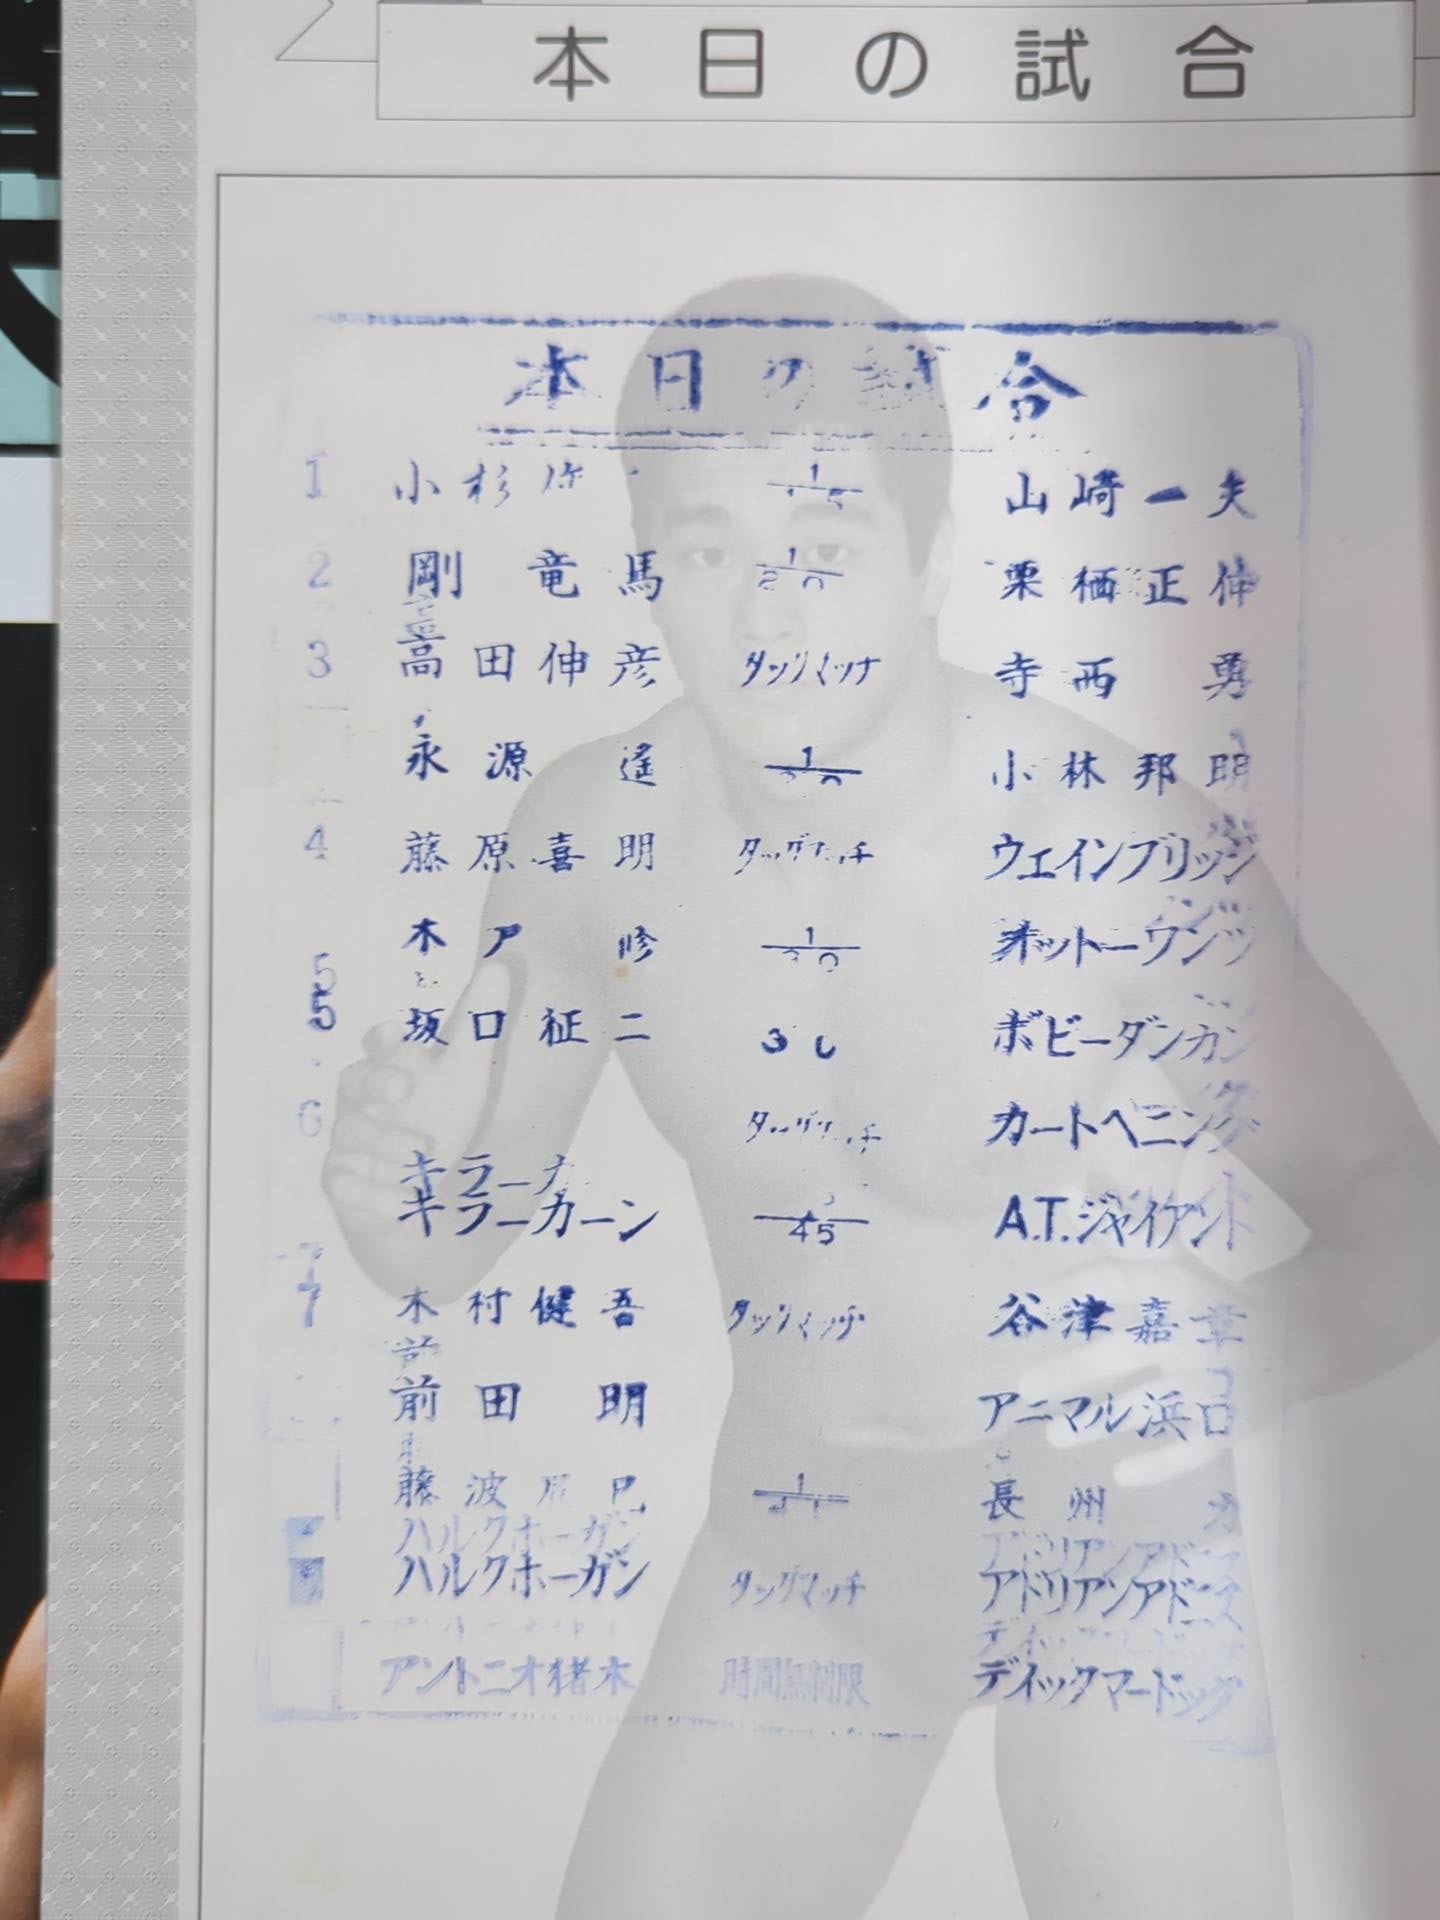 本日の試合
本日の試合
1 小杉 1 山崎一夫
2 剛竜馬 1 20 栗栖正伸
3 高田伸彦 タッグマッチ 寺西勇
永源遙 1 小林邦明
4 藤原喜明 タッグマッチ ウェインブリッジ
木戸修 1 オットーワンツ
5 坂口征二 30 ボビーダンカン
6 タッグマッチ カートヘニング
キラーカーン 45 A.T.ジャイアント
7 木村健吾 タッグマッチ 谷津嘉章
前田明 アニマル浜口
藤波辰巳 1 長州力
ハルクホーガン タッグマッチ アドリアンアドニス
アントニオ猪木 時間無制限 ディックマードック